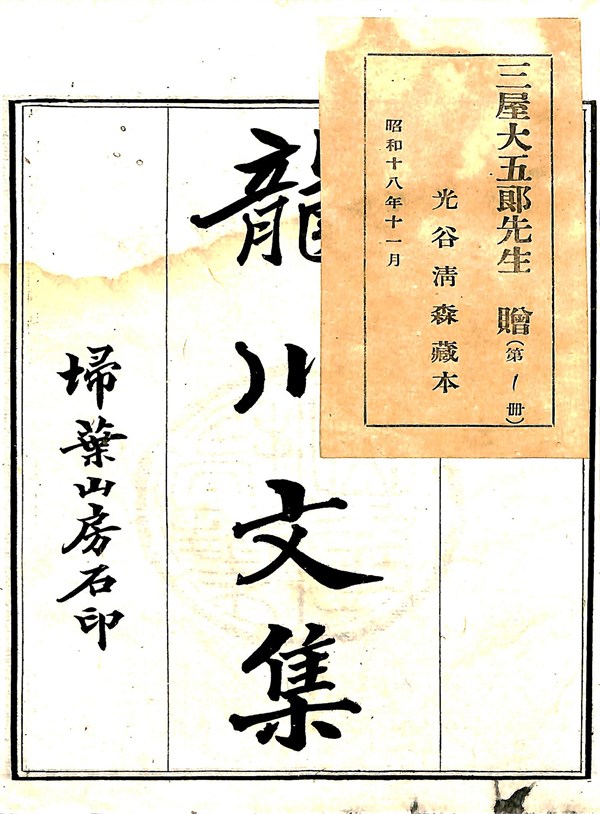 三屋大五郎先生 贈(第1冊)
光谷清森藏本
昭和十八年十一月
龍川文集
埽葉山房石印